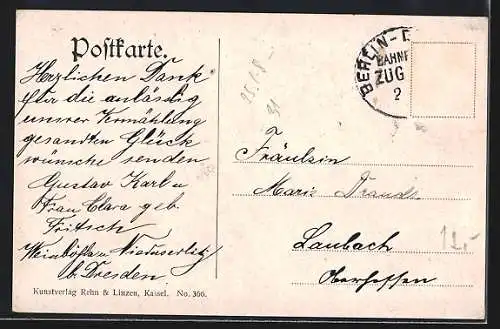 Postkarte.
Herzlichen Dank
für die anlässig
unsrer Vermählung
gesandten Glück
wünsche senden
Gustav Karl u
Frau Clara geb.
Fritsch
Weinböhla u. Niederserlitz
b. Dresden
Kunstverlag Rehn & Linzen, Kassel. No. 366.
BERLIN-D
BAHNP
ZUG
2
Fräulein
Marie
Laubach
Oberhessen
12,-